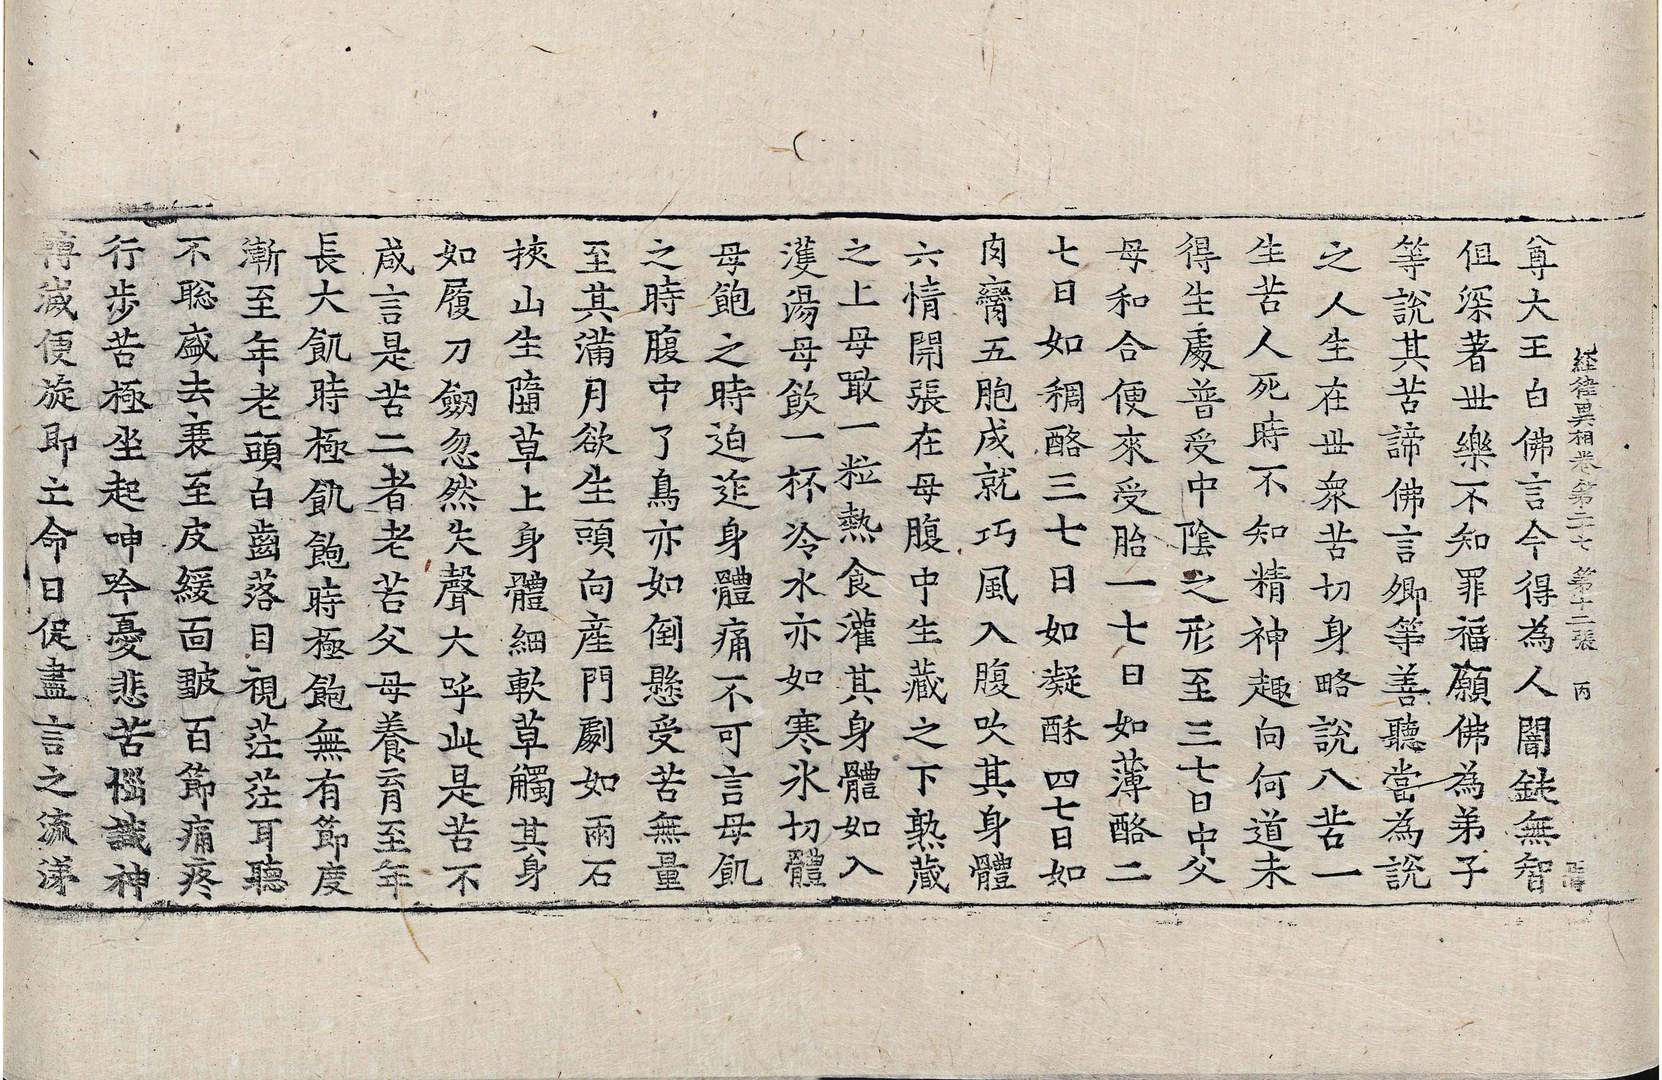 経律異相卷第二十七 第十二張 丙
尊大王白佛言今得為人闇鈍無智
但深著世樂不知罪福願佛為弟子
等說其苦諦佛言卿等善聽當為說
之人生在世衆苦切身略說八苦一
生苦人死時不知精神趣向何道未
得生處普受中陰之形至三七日中父
母和合便來受胎一七日如薄酪二
七日如稠酪三七日如凝酥四七日如
肉臠五胞成就巧風入腹吹其身體
六情開張在母腹中生藏之下熟藏
之上母噉一粒熱食灌其身體如入
濩湯母飲一杯冷水亦如寒氷切體
母飽之時迫迮身體痛不可言母飢
之時腹中了鳥亦如倒懸受苦無量
至其滿月欲生頭向產門劇如兩石
挾山生墮草上身體細軟草觸其身
如履刀劒忽然失聲大呼此是苦不
咸言是苦二者老苦父母養育至年
長大飢時極飢飽時極飽無有節度
漸至年老頭白齒落目視茫茫耳聽
不聡盛去衰至皮緩面皺百節痛疼
行步苦極坐起呻吟憂悲苦惱識神
轉滅便旋即亡命日促盡言之流涕